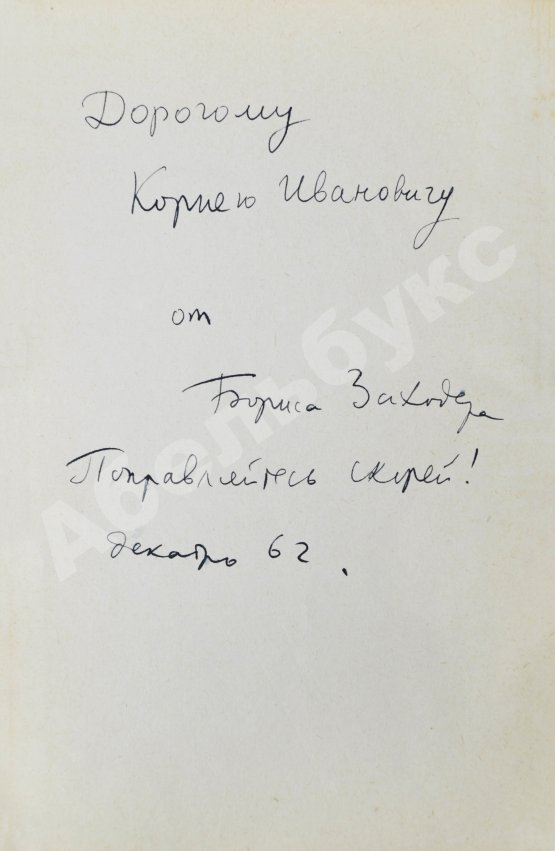 Дорогому
Корнею Ивановичу
от
Бориса Заходера
Поправляйтесь скорей!
декабрь 62.
Абельбукс